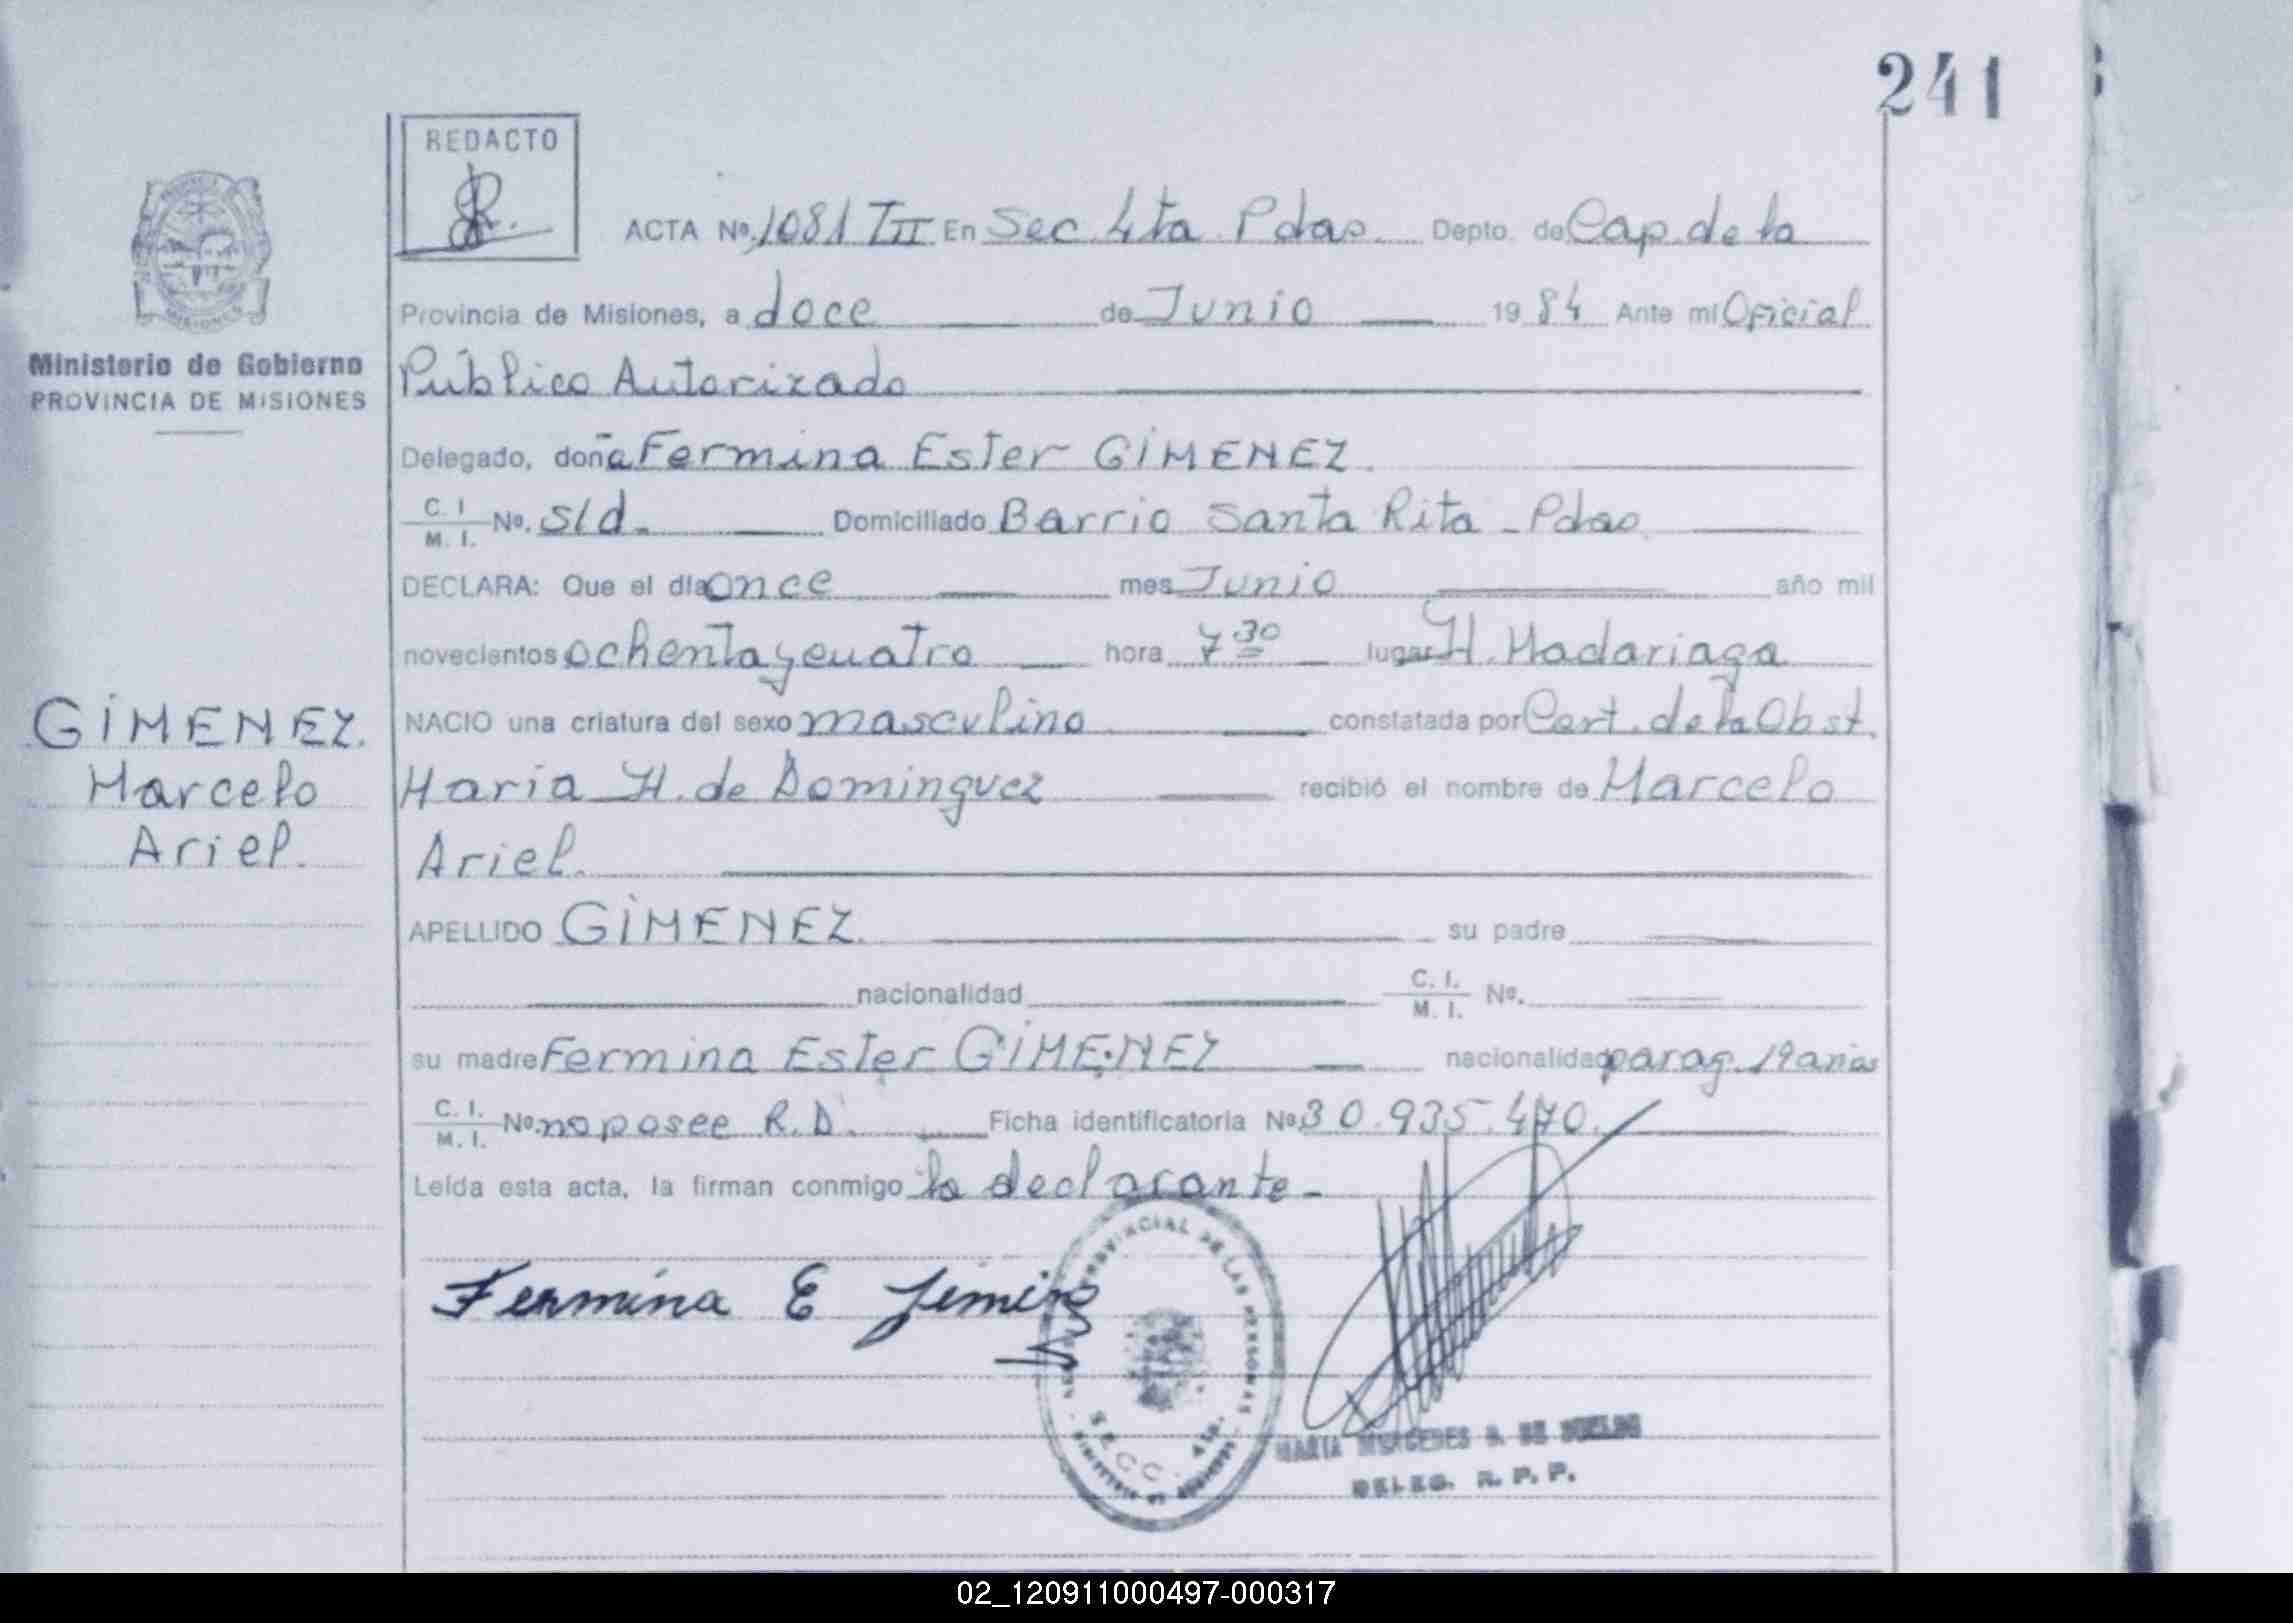 241
REDACTO
ACTA Nº. 1081 TII En Sec. 4ta. Pdas. Depto. de Cap. de la
Provincia de Misiones, a doce de Junio 19 84 Ante mi Oficial
Ministerio de Gobierno
PROVINCIA DE MISIONES
Público Autorizado
Delegado, doña Fermina Ester GIMENEZ.
C. I. / M. I. Nº. s/d. Domiciliado Barrio Santa Rita - Pdas
DECLARA: Que el día once mes Junio año mil
novecientos ochenta y cuatro hora 7 30 lugar H. Madariaga
GIMENEZ.
Marcelo
Ariel.
NACIO una criatura del sexo masculino constatada por Cert. de la Obst.
Maria H. de Dominguez recibió el nombre de Marcelo
Ariel.
APELLIDO GIMENEZ. su padre
nacionalidad C. I. / M. I. Nº.
su madre Fermina Ester GIMENEZ nacionalidad parag. 19 años
C. I. / M. I. Nº. no posee R.D. Ficha identificatoria Nº 30.935.470.
Leída esta acta, la firman conmigo la declarante -
Fermina E
PROVINCIAL DE LAS PERSONAS
SECC. 4ta.
MARIA MERCEDES
DELEG. R. P. P.
02_120911000497-000317